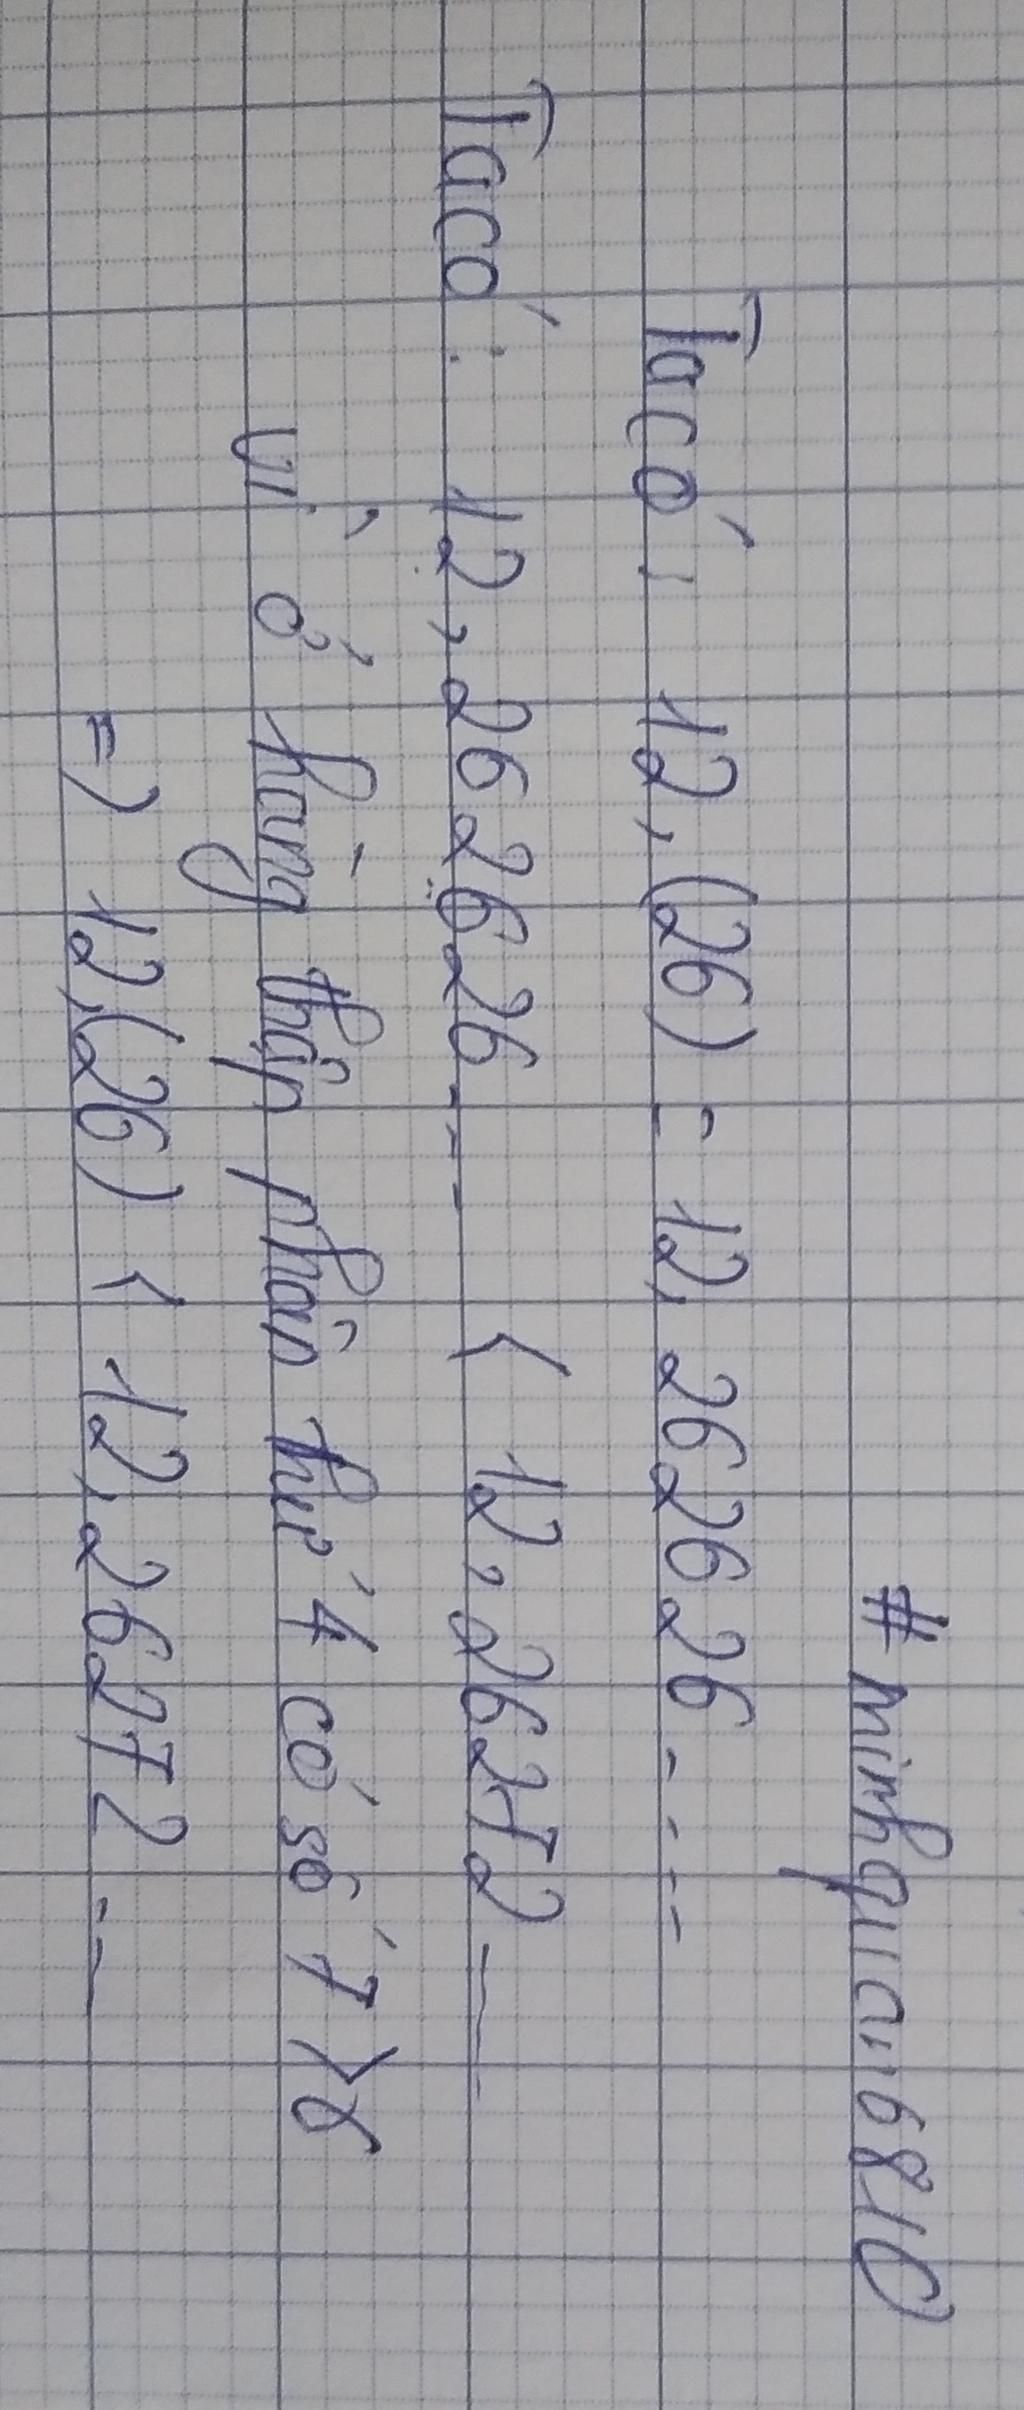 # minhquan6810
Ta có: 12,(26) = 12,262626----
Ta có: 12,262626--- < 12,26272---
vì ở hàng thập phân thứ 4 có số 7 > 6
=> 12,(26) < 12,26272---